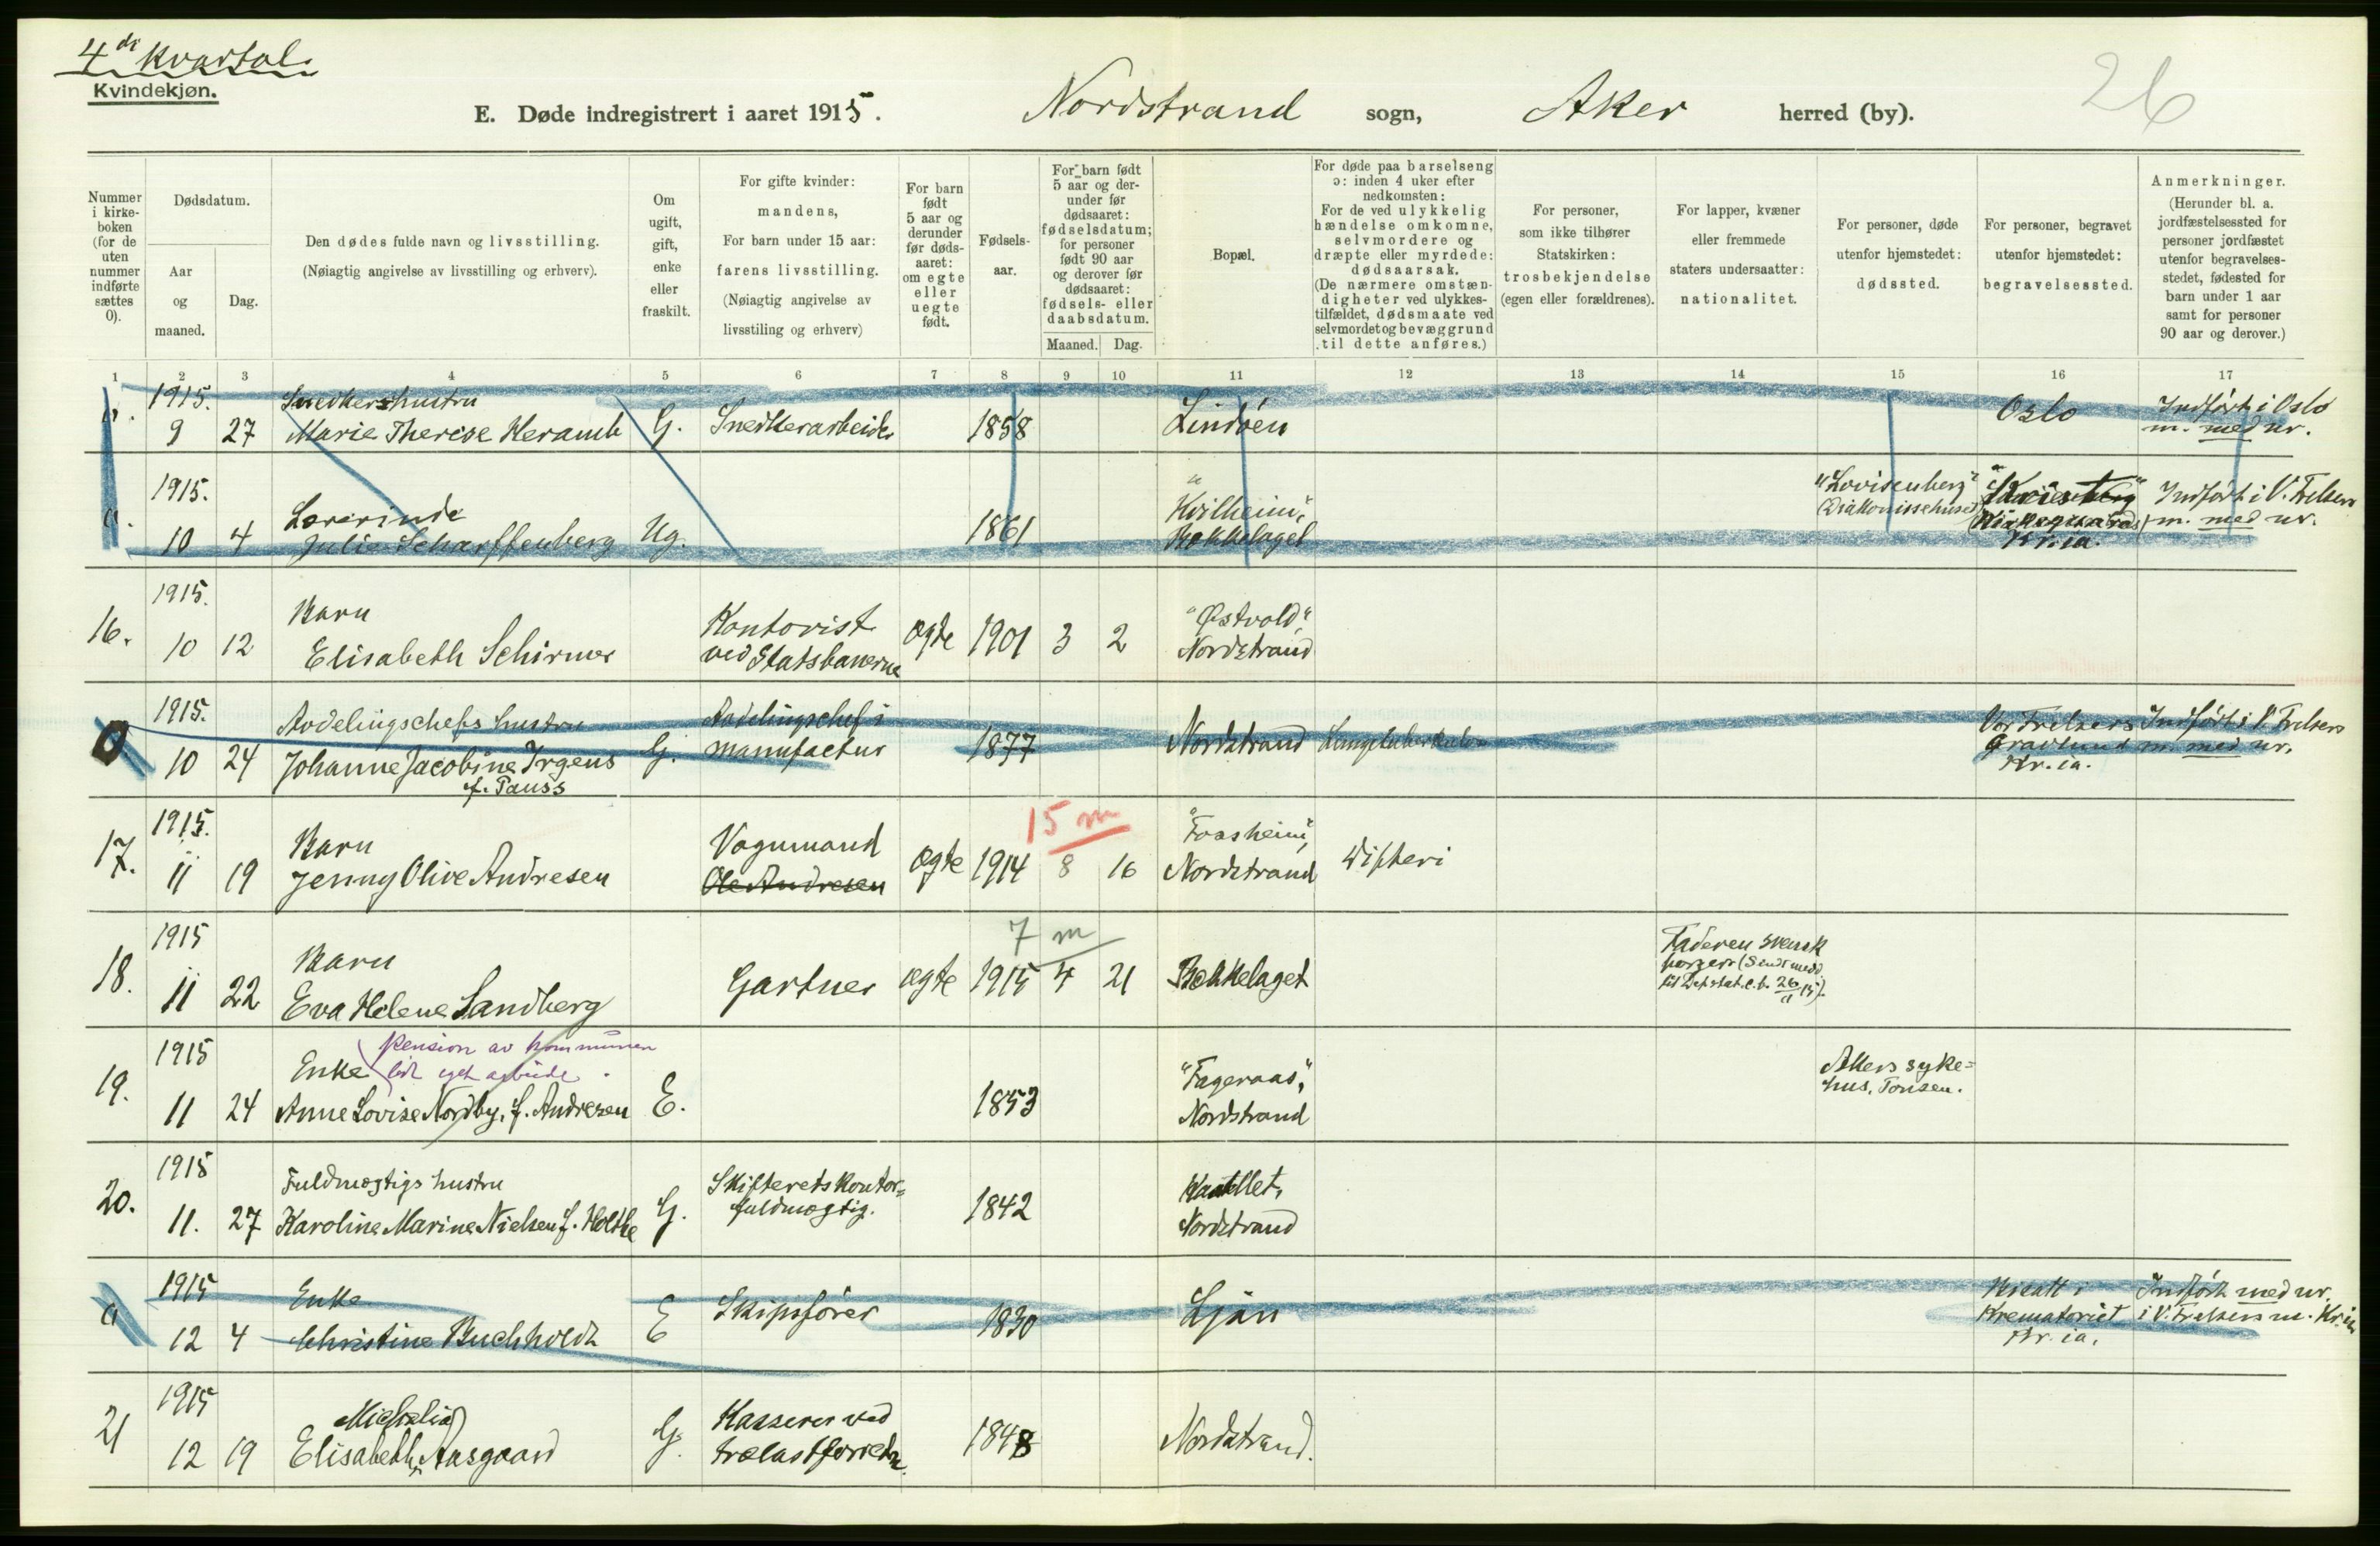 4de Kvartal.
Kvindekjøn.
E. Døde indregistrert i aaret 1915. Nordstrand sogn, Aker herred (by).
26
Nummer i kirke-boken (for de uten nummer indførte sættes 0).
Dødsdatum.
Aar og maaned.
Dag.
Den dødes fulde navn og livsstilling.
(Nøiagtig angivelse av livsstilling og erhverv).
Om ugift, gift, enke eller fraskilt.
For gifte kvinder: mandens,
For barn under 15 aar: farens livsstilling.
(Nøiagtig angivelse av livsstiling og erhverv)
For barn født 5 aar og derunder før døds-aaret: om egte eller uegte født.
Fødsels-aar.
For barn født 5 aar og der-under før dødsaaret: fødselsdatum; for personer født 90 aar og derover før dødsaaret: fødsels- eller daabsdatum.
Maaned. Dag.
Bopæl.
For døde paa barselseng ɔ: inden 4 uker efter nedkomsten:
For de ved ulykkelig hændelse omkomne, selvmordere og dræpte eller myrdede: dødsaarsak.
(De nærmere omstæn-digheter ved ulykkes-tilfældet, dødsmaate ved selvmordet og bevæggrund til dette anføres.)
For personer, som ikke tilhører Statskirken: trosbekjendelse (egen eller forældrenes).
For lapper, kvæner eller fremmede staters undersaatter: nationalitet.
For personer, døde utenfor hjemstedet: dødssted.
For personer, begravet utenfor hjemstedet: begravelsessted.
Anmerkninger.
(Herunder bl. a. jordfæstelsessted for personer jordfæstet utenfor begravelses-stedet, fødested for barn under 1 aar samt for personer 90 aar og derover.)
1 2 3 4 5 6 7 8 9 10 11 12 13 14 15 16 17
1915. Snedkershustru
0. 9 27 Marie Therese Heramb G. Snedkerarbeider 1858 Lindøen Oslo Indført i Oslo
m. med nr.
1915. Lærerinde
0. 10 4 Julie Scharffenberg Ug. 1861 "Hvilheim", Bækkelaget "Lovisenberg" Diakonissehuset Kr.ia. Indført i V. Frelsers
m. med nr.
1915. Barn
16. 10 12 Elisabeth Schirmer Kontorist ved Statsbanerne ægte 1901 3 2 "Østvold", Nordstrand
1915. Avdelingschefs hustru
0 10 24 Johanne Jacobine Irgens f. Pauss G. Avdelingschef i manufactur 1877 Nordstrand Lungetuberkulose Vor Frelsers Gravlund Kr.ia. Indført i V. Frelsers
m. med nr.
15 m
1915. Barn
17. 11 19 Jenny Olive Andresen Vognmand Ole Andresen ægte 1914 8 16 Nordstrand Difteri
7 m
1915 Barn
18. 11 22 Eva Helene Sandberg Gartner ægte 1915 4 21 Bækkelaget Faderen svensk borger (Sendt medd. til Det stat. c.b. 26/11 15).
1915 Enke (Pension av kommunen lidt eget arbeide.
19. 11 24 Anne Lovise Nordby, f. Andresen E. 1853 "Fageraas", Nordstrand Akers syke-hus, Tonsen.
1915 Fuldmægtigs hustru
20. 11. 27 Karoline Marine Nielsen f. Holthe G. Skifteretskontor-fuldmægtig. 1842 Nordstrand
1915 Enke
0 12 4 Christine Buchholdt E Skipsfører 1830 Ljan Bisatt i Krematoriet Kr.ia. Indført med nr.
i V. Frelsers m. Kr.ia
1915
21 12 19 Elisabeth Aasgaard G. Kasserer ved trælastforretn. 1848 Nordstrand.